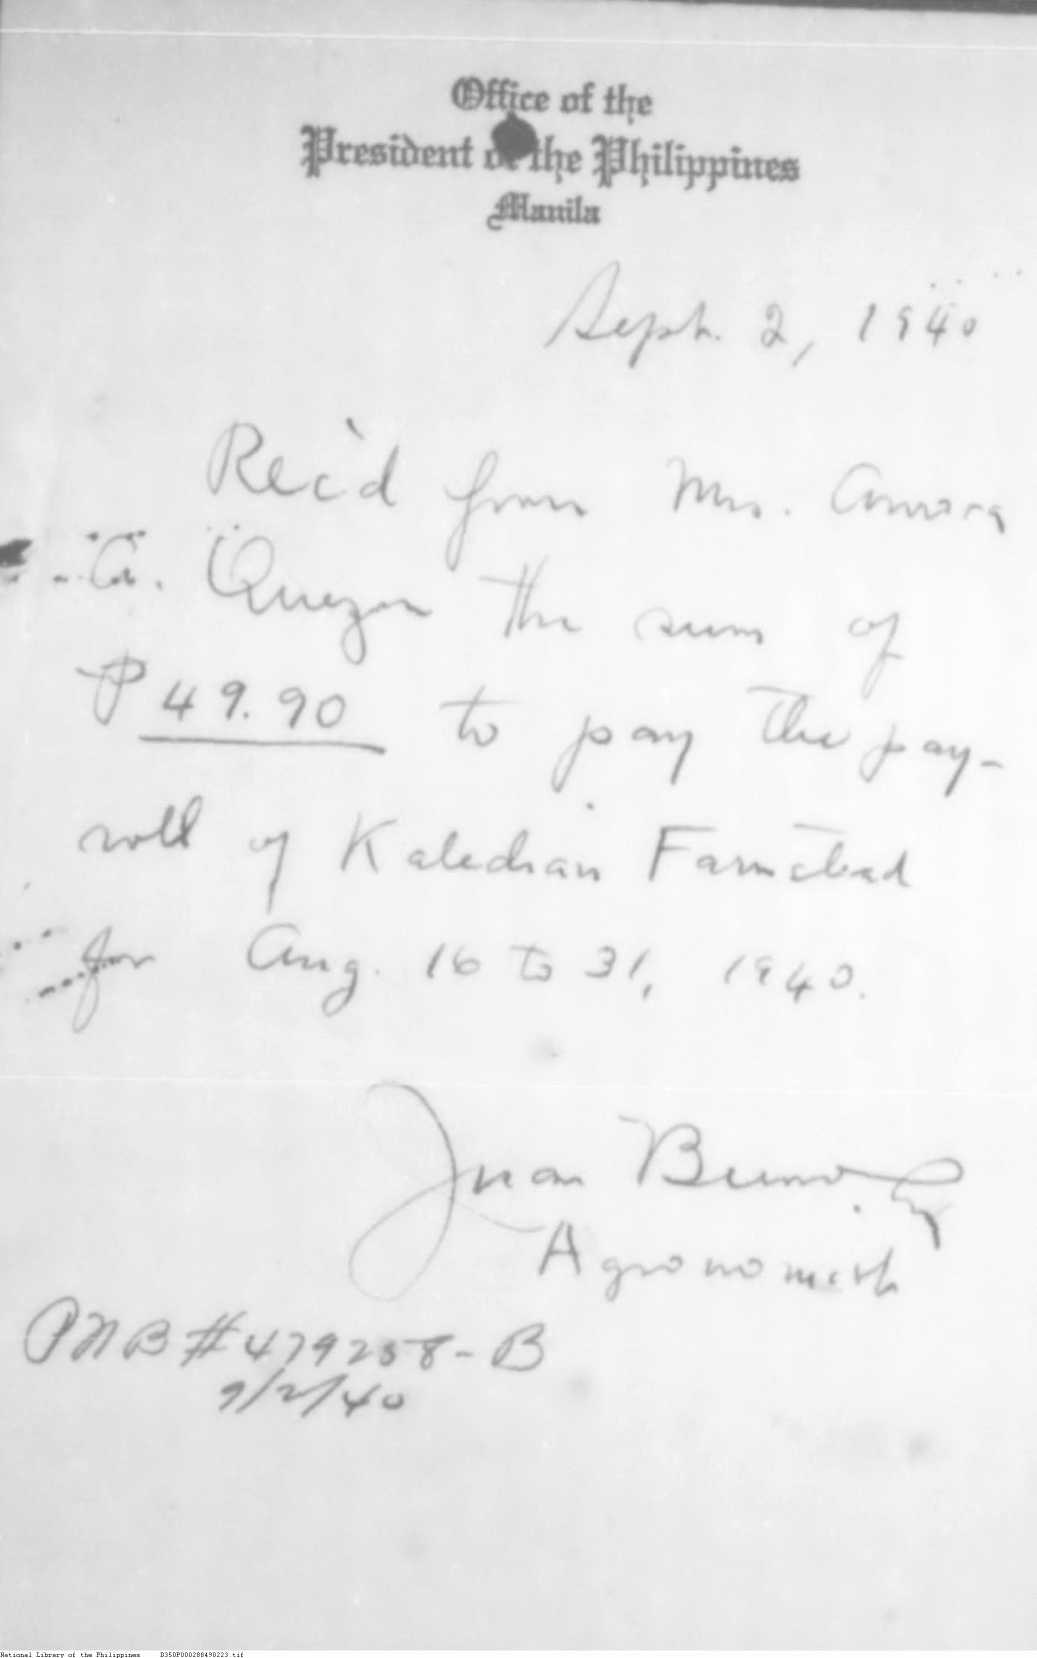 Office of the
President of the Philippines
Manila
Sept. 2, 1940
Rec'd from Mrs. Aurora
A. Quezon the sum of
₱ 49.90 to pay the pay-
roll of Kaledian Farmstead
for Aug. 16 to 31, 1940.
Juan
Agronomist
PNB # 479258-B
9/2/40
National Library of the Philippines D350P000288498223.tif